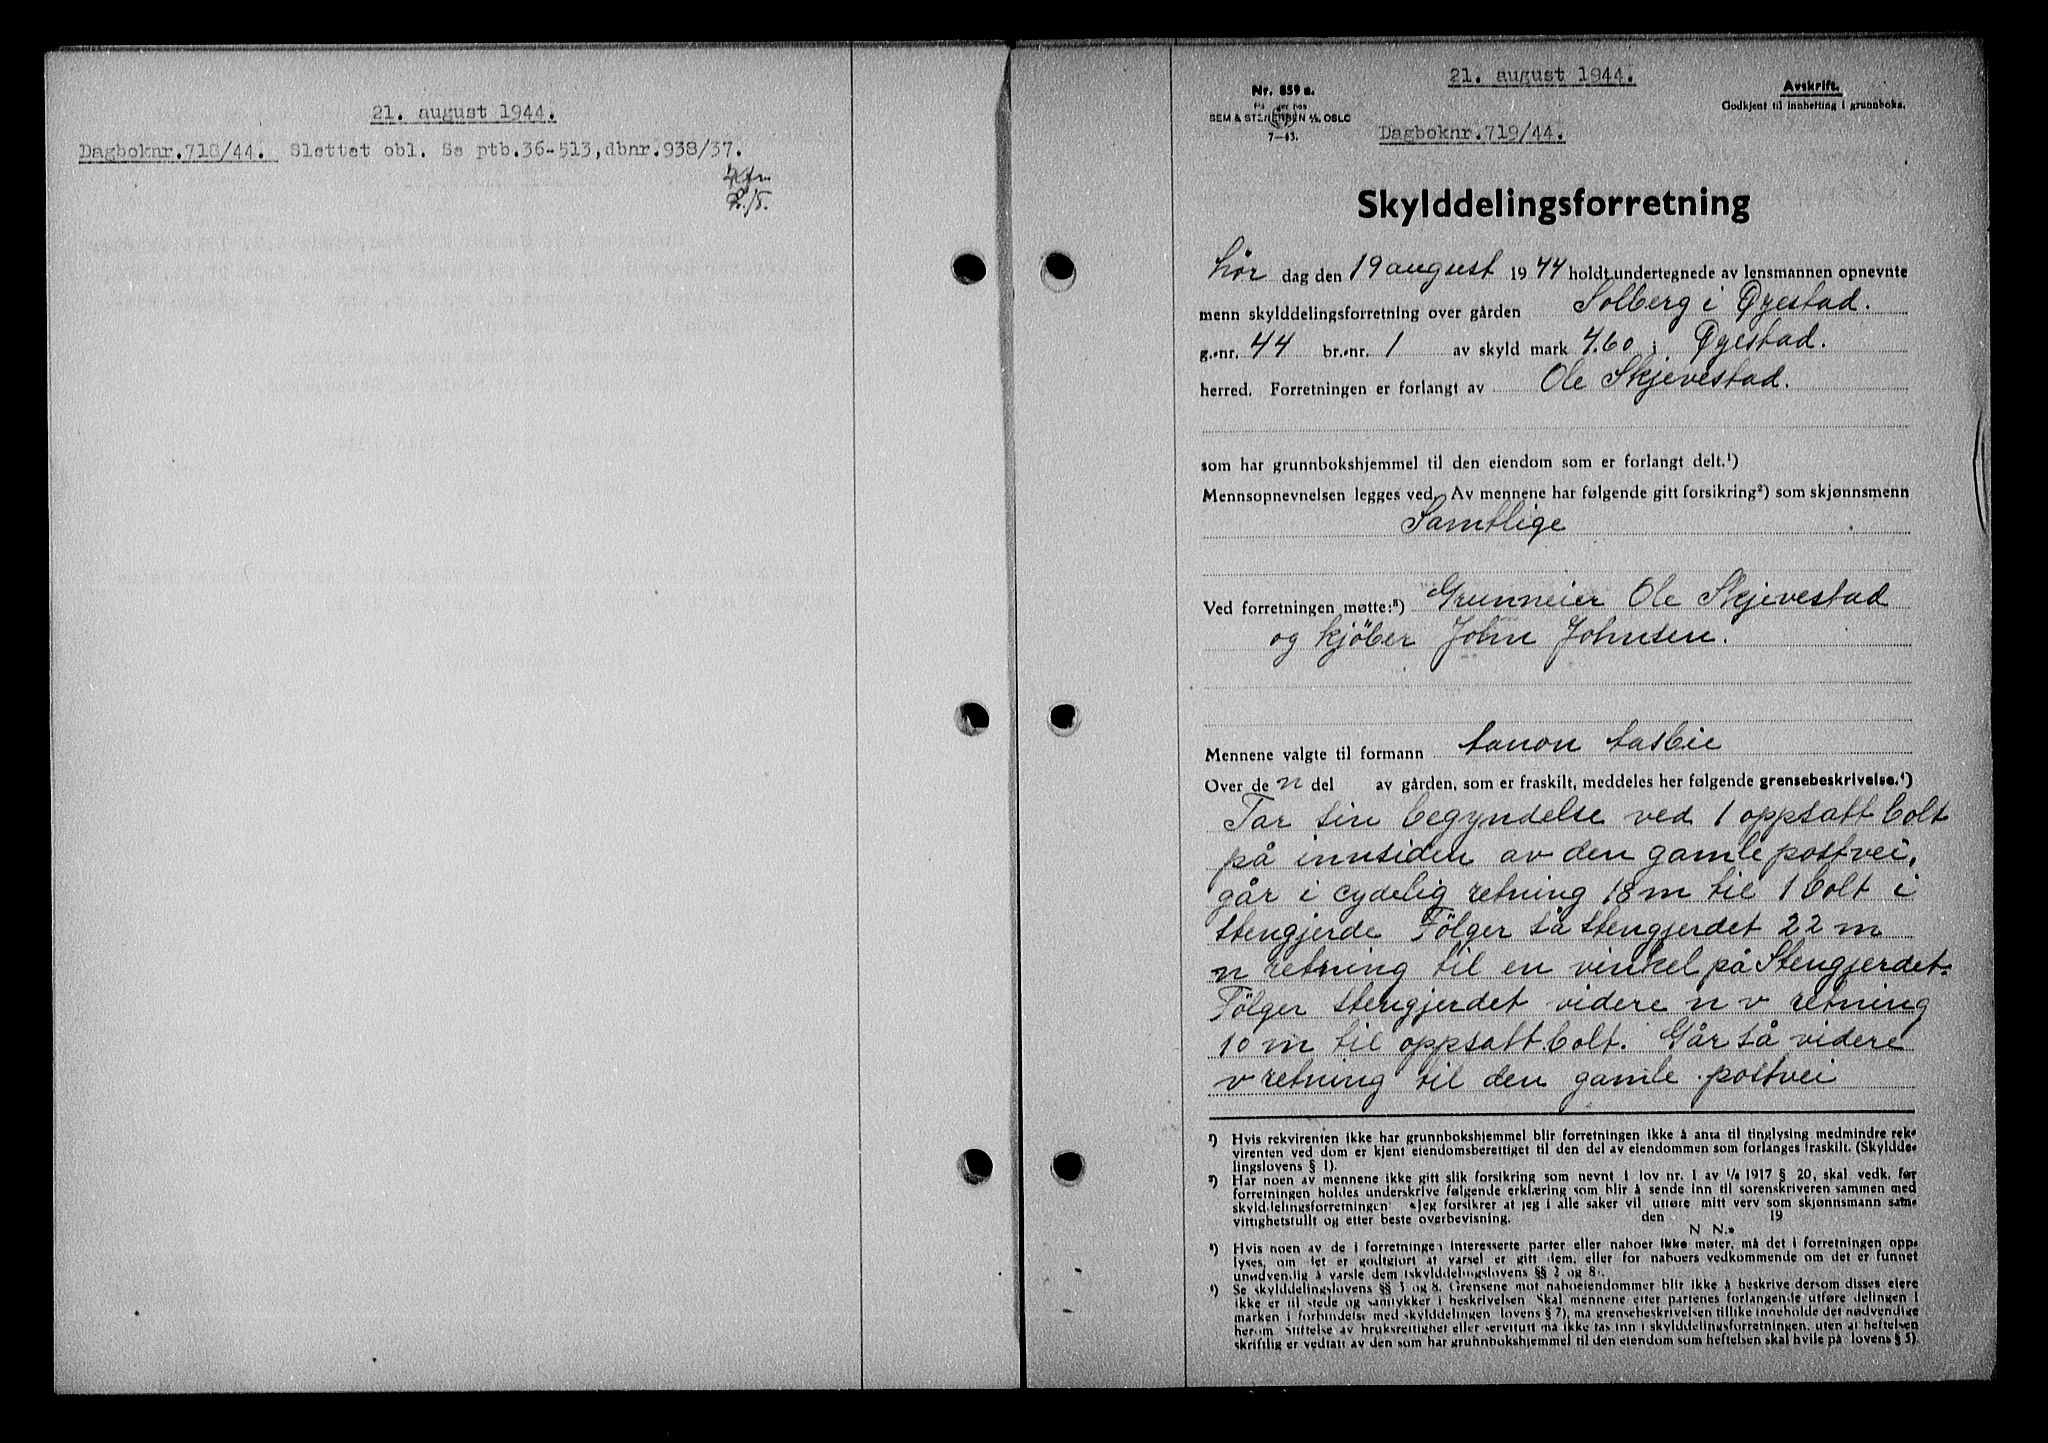 21. august 1944.
Dagboknr.718/44. Slettet obl. Se ptb.36-513, dbnr.938/37.
21. august 1944.
Nr. 859 a.
SEM & STENERSEN A/S, OSLO
7—43.
Avskrift.
Godkjent til innhefting i grunnboka.
Dagboknr.719/44.
Skylddelingsforretning
Lør dag den 19 august 1944 holdt undertegnede av lensmannen opnevnte
menn skylddelingsforretning over gården Solberg i Øyestad.
g.-nr. 44 br.-nr. 1 av skyld mark 4.60 i Øyestad.
herred. Forretningen er forlangt av Ole Skjevestad.
som har grunnbokshjemmel til den eiendom som er forlangt delt.¹)
Mennsopnevnelsen legges ved. Av mennene har følgende gitt forsikring²) som skjønnsmenn
Samtlige
Ved forretningen møtte:³) Grunneier Ole Skjevestad
og kjöber John Johnsen.
Mennene valgte til formann
Over de n del av gården, som er fraskilt, meddeles her følgende grensebeskrivelse.⁴)
Tar sin begyndelse ved 1 oppsatt bolt
på innsiden av den gamle postvei,
går i cydelig retning 18 m til 1 bolt i
stengjerde Følger så stengjerdet 22 m
n retning til en vinkel på Stengjerdet.
Følger stengjerdet videre n v retning
10 m til oppsatt bolt. Går så videre
v retning til den gamle postvei
¹) Hvis rekvirenten ikke har grunnbokshjemmel blir forretningen ikke å anta til tinglysing medmindre rek-
virenten ved dom er kjent eiendomsberettiget til den del av eiendommen som forlanges fraskilt. (Skyldde-
lingslovens § 1).
²) Har noen av mennene ikke gitt slik forsikring som nevnt i lov nr. 1 av 1/6 1917 § 20, skal vedk. før
forretningen holdes underskrive følgende erklæring som blir å sende inn til sorenskriveren sammen med
skylddelingsforretningen: «Jeg forsikrer at jeg i alle saker vil utføre mitt verv som skjønnsmann sam-
vittighetsfullt og etter beste overbevisning. den 19
N. N.»
³) Hvis noen av de i forretningen interesserte parter eller naboer ikke møter, må det i forretningen opp-
lyses, om det er godtgjort at varsel er gitt dem, eller for naboers vedkommende om det er funnet
unødvendig å varsle dem (skylddelingslovens §§ 2 og 8).
⁴) Se skylddelingslovens §§ 3 og 8. Grensene mot naboeiendommer blir ikke å beskrive dersom disses eiere
ikke er til stede og samtykker i beskrivelsen. Skal mennene etter partenes forlangende utføre delingen i
marken i forbindelse med skylddelingen (lovens § 7), må grensebeskrivelsen tillike inneholde det nødvendige
herom. Stiftelse av bruksrettighet eller servitutt må ikke tas inn i skylddelingsforretningen, uten at heftelsen
skriftlig er vedtatt av den som har grunnbokshjemmel til den eiendom som heftelsen skal hvile på (lovens § 5).